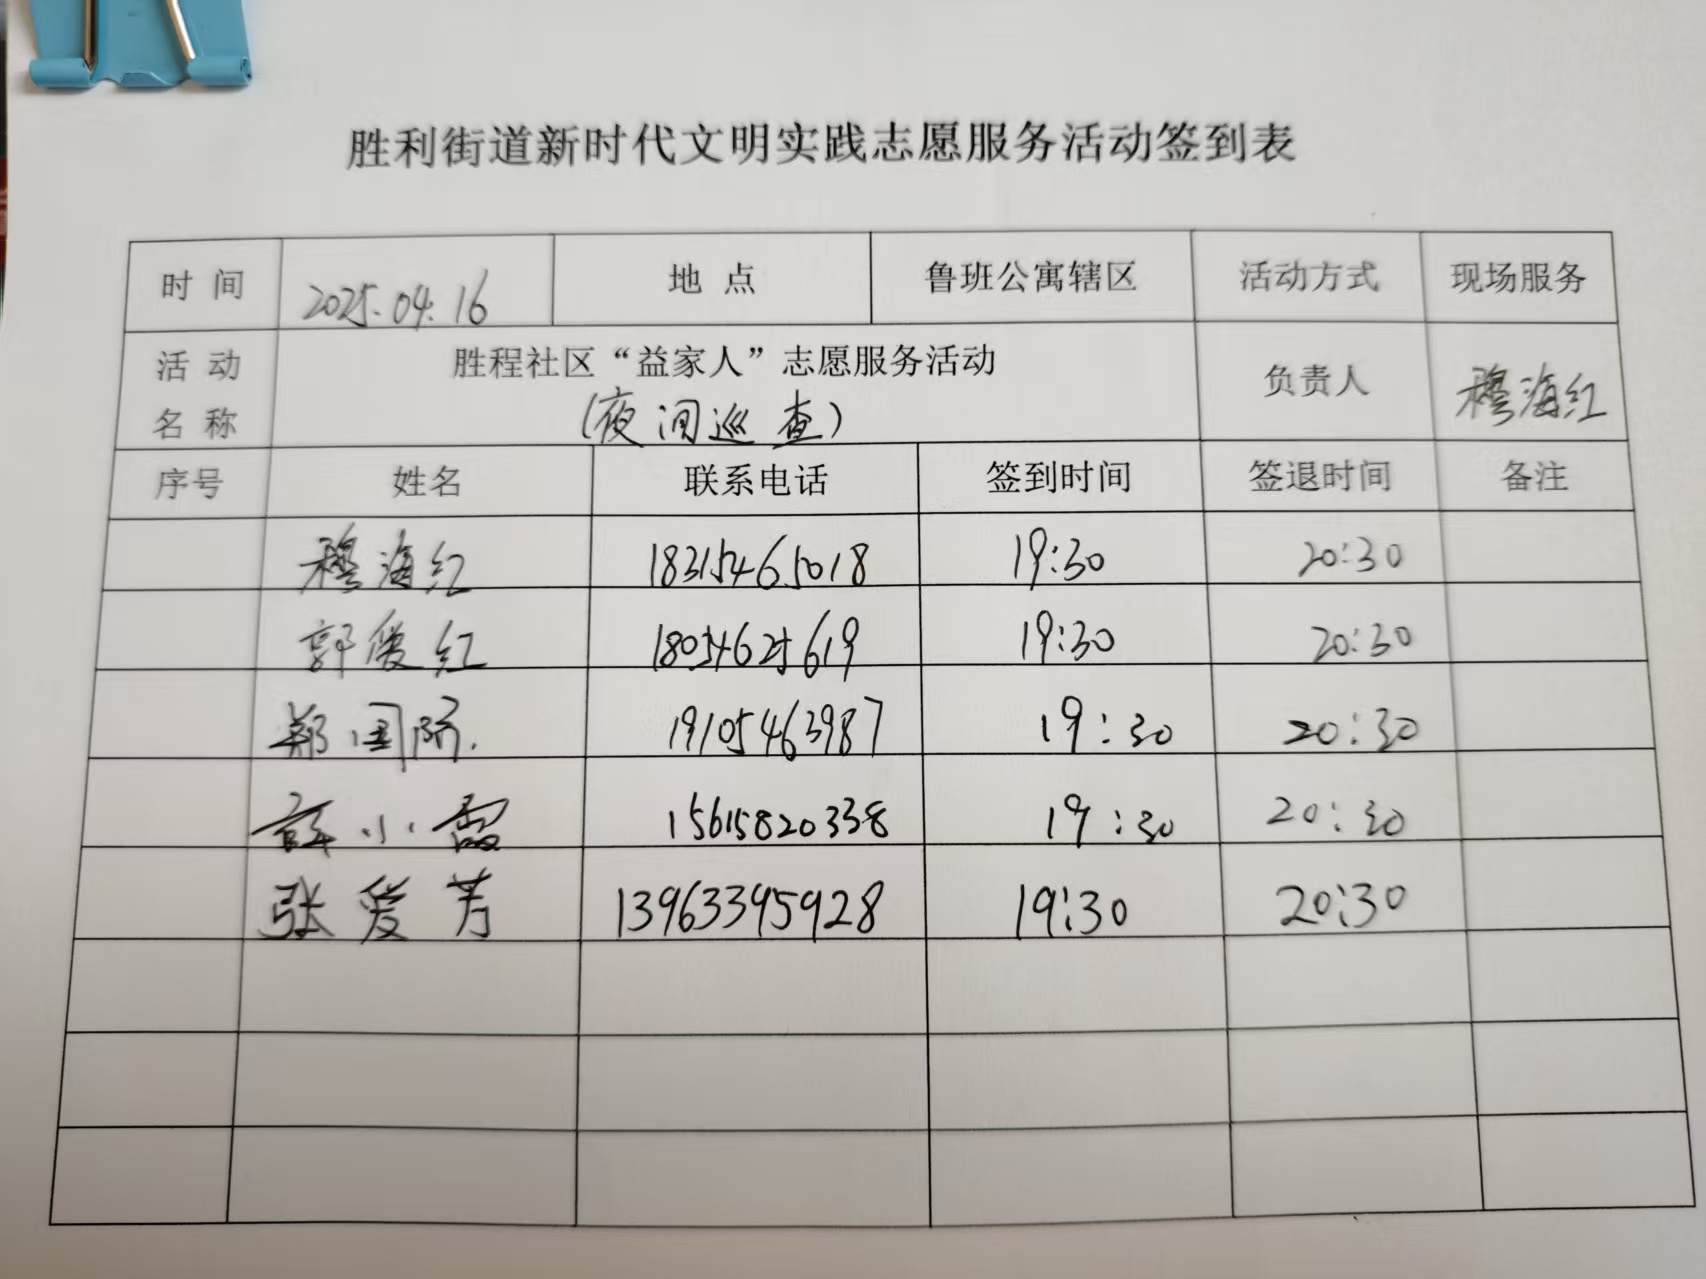 胜利街道新时代文明实践志愿服务活动签到表
时 间 2025.04.16 地 点 鲁班公寓辖区 活动方式 现场服务
活 动 名 称 胜程社区“益家人”志愿服务活动 负责人 穆海红
(夜间巡查)
序号 姓名 联系电话 签到时间 签退时间 备注
穆海红 18315465018 19:30 20:30
郭爱红 18054625619 19:30 20:30
郑国防 19105463987 19:30 20:30
薛小霞 15615820338 19:30 20:30
张爱芳 13963395928 19:30 20:30